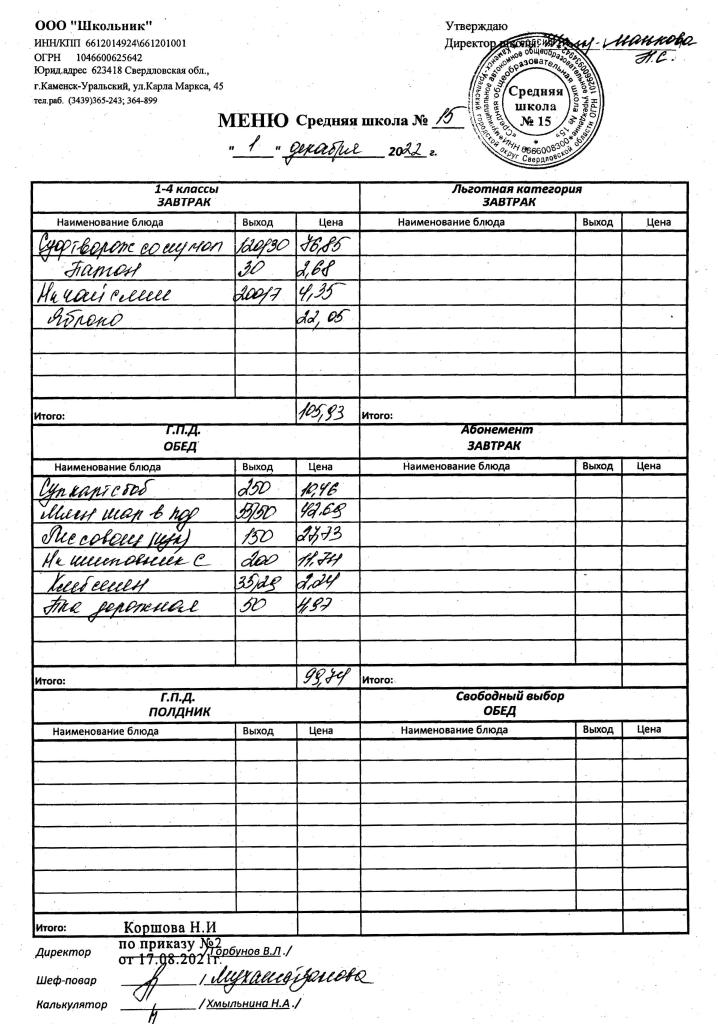 ООО "Школьник"
ИНН/КПП 6612014924\661201001
ОГРН 1046600625642
Юрид.адрес 623418 Свердловская обл.,
г.Каменск-Уральский, ул.Карла Маркса, 45
тел.раб. (3439)365-243; 364-899
Утверждаю
Директор школы
Н.С.
Средняя
школа
№ 15
МЕНЮ Средняя школа № 15
" 1 " декабря 2022 г.
1-4 классы
ЗАВТРАК
Льготная категория
ЗАВТРАК
Наименование блюда Выход Цена
Наименование блюда Выход Цена
120/30 76,85
Батон 30 2,68
На чай с лим 200/7 4,35
Яблоко 22,05
Итого: 105,93
Итого:
Г.П.Д.
ОБЕД
Абонемент
ЗАВТРАК
Наименование блюда Выход Цена
Наименование блюда Выход Цена
Суп карт с боб 250 10,46
в под 42.69
150 27,73
На шиповник с 200 11.74
35/29 2.24
дорожная 50 4,97
Итого: 99,74
Итого:
Г.П.Д.
ПОЛДНИК
Свободный выбор
ОБЕД
Наименование блюда Выход Цена
Наименование блюда Выход Цена
Итого:
Коршова Н.И
по приказу №2
от 17.08.2021г.
Директор /Горбунов В.Л./
Шеф-повар /
Калькулятор /Хмыльнина Н.А./